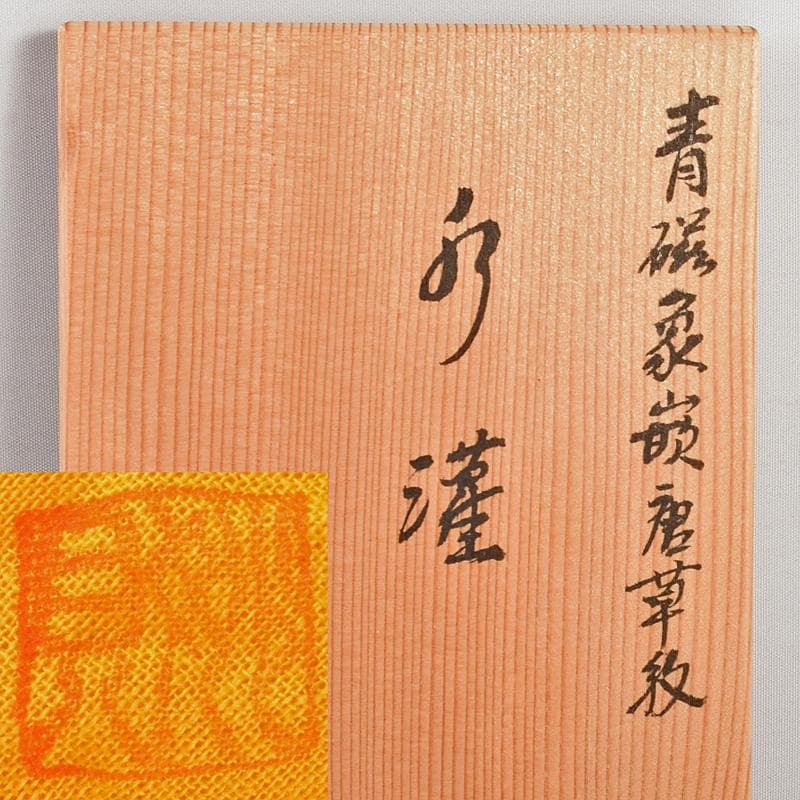 青磁象嵌唐草紋
水灌